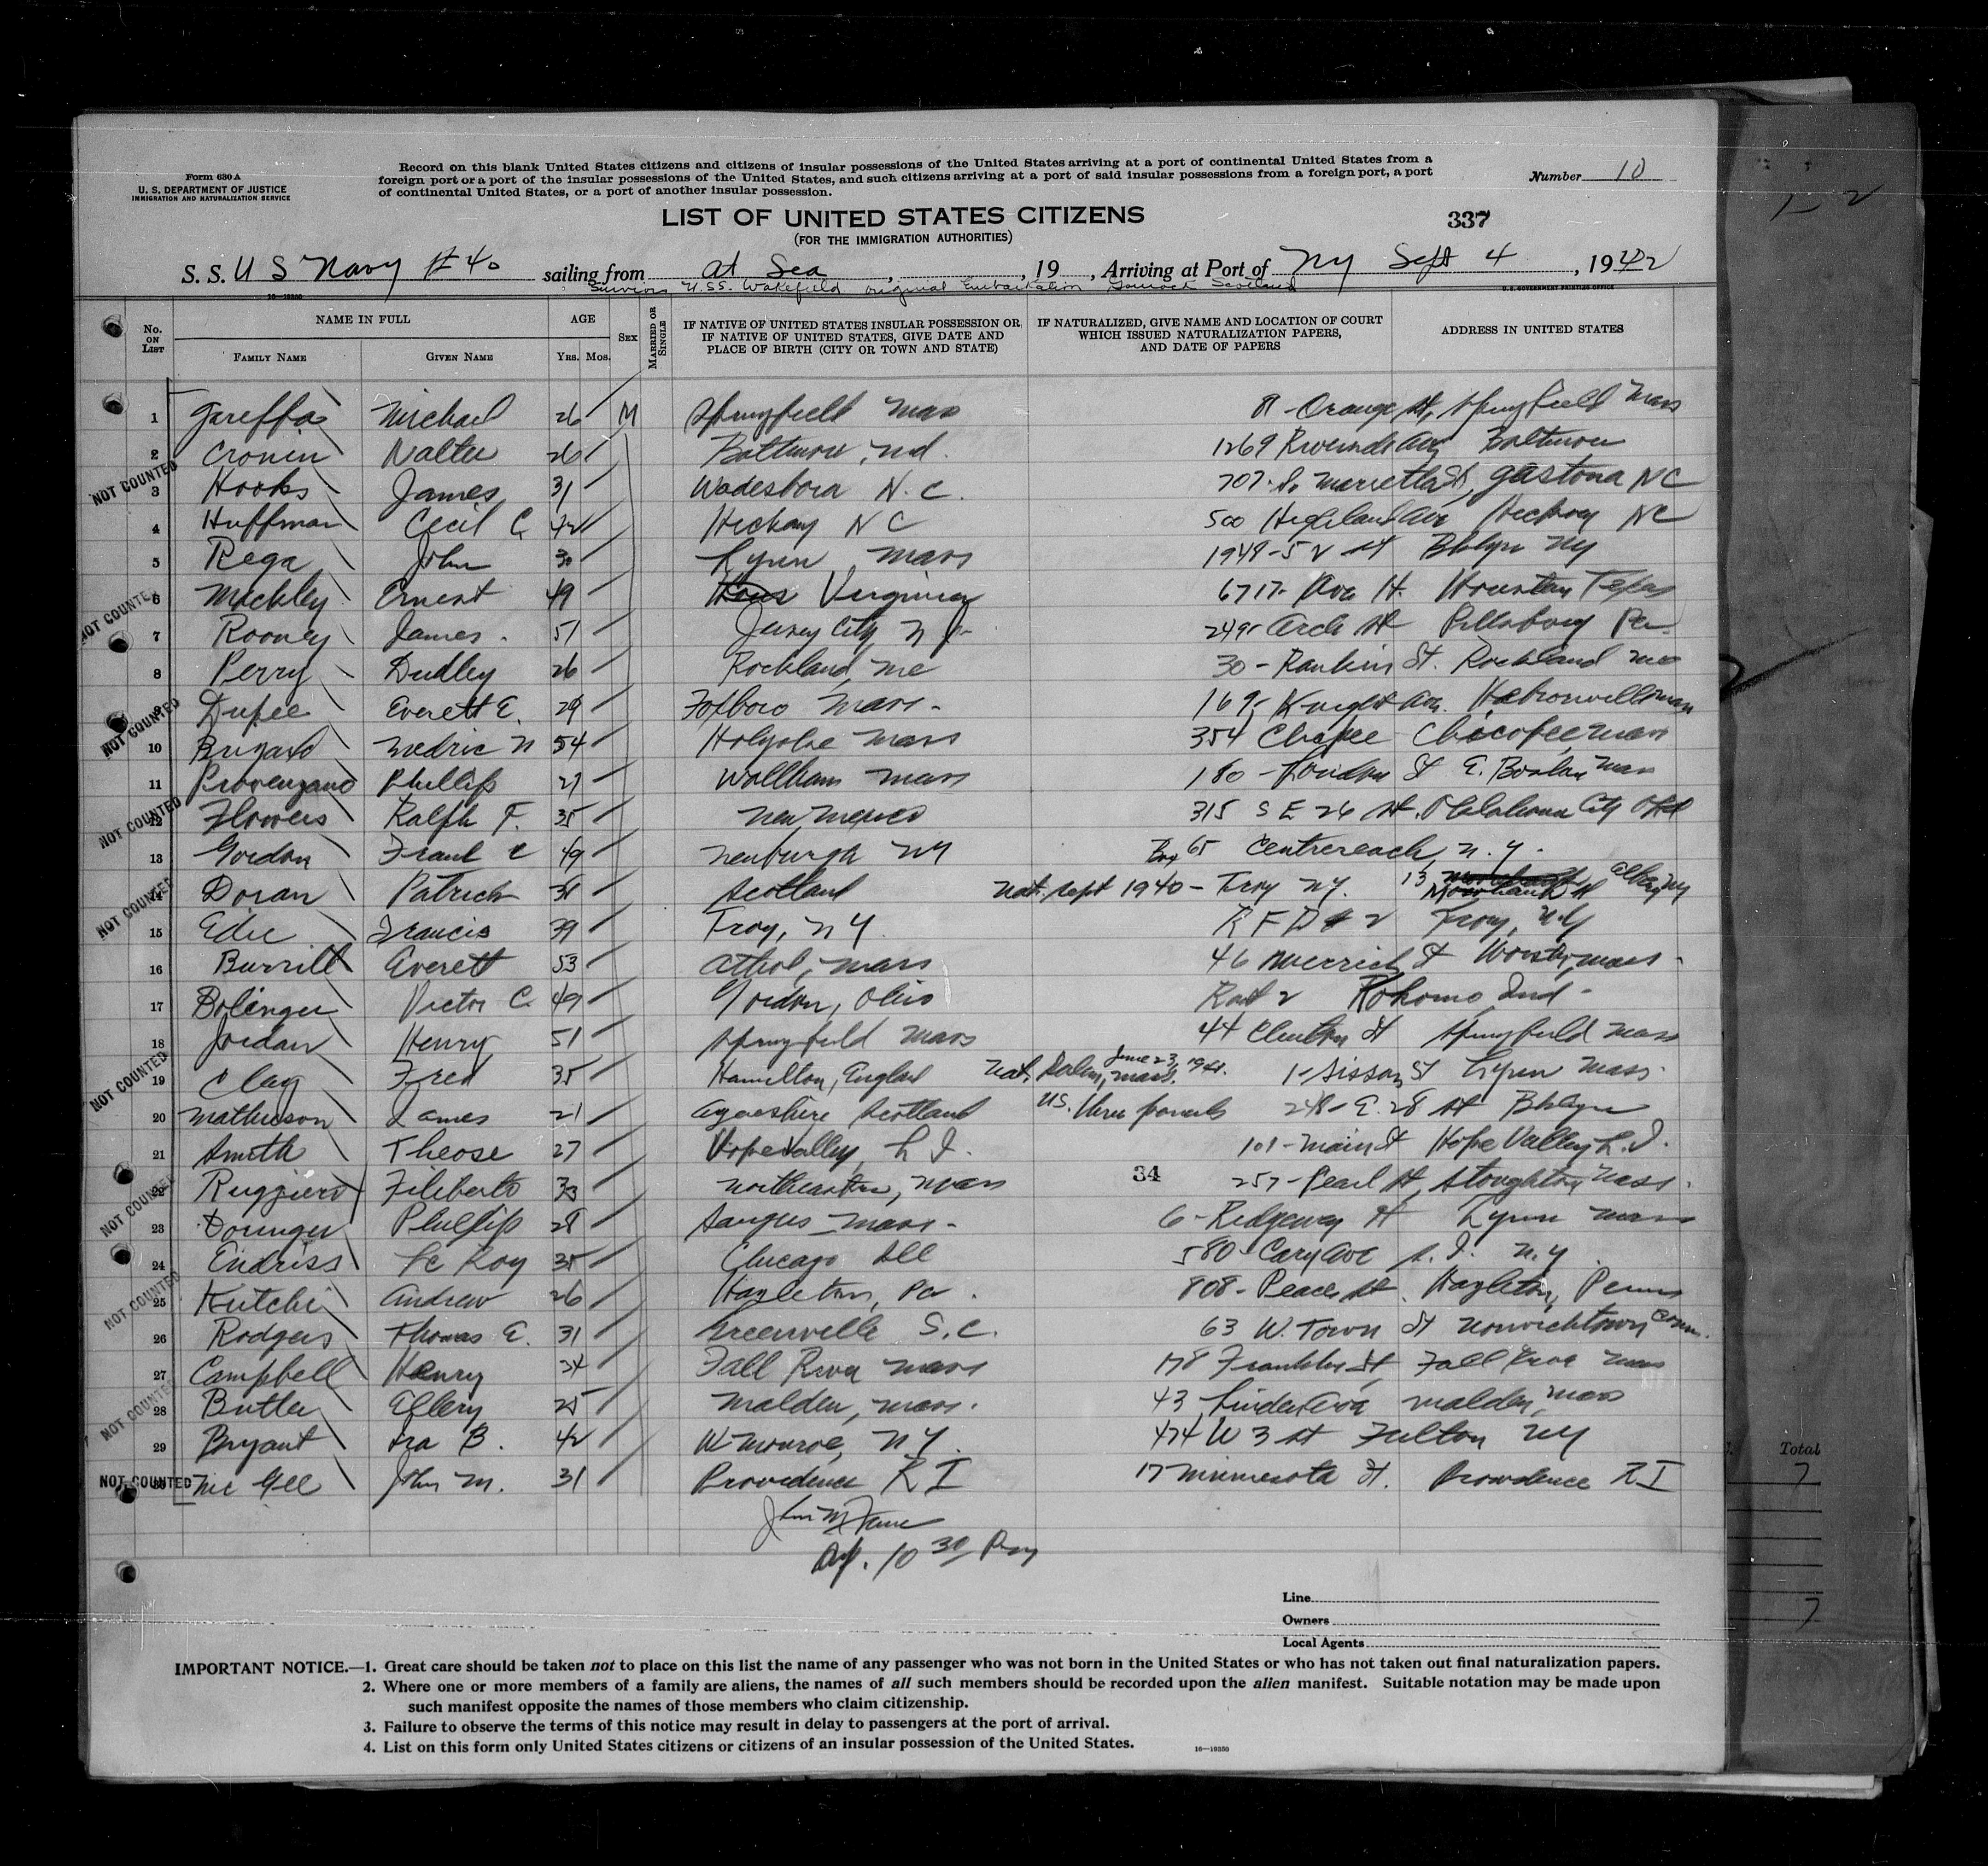 Form 630 A
U. S. DEPARTMENT OF JUSTICE
IMMIGRATION AND NATURALIZATION SERVICE
Record on this blank United States citizens and citizens of insular possessions of the United States arriving at a port of continental United States from a
foreign port or a port of the insular possessions of the United States, and such citizens arriving at a port of said insular possessions from a foreign port, a port
of continental United States, or a port of another insular possession.
Number 10
LIST OF UNITED STATES CITIZENS
(FOR THE IMMIGRATION AUTHORITIES)
337
S. S. U S Navy #40 sailing from at Sea, , 19 , Arriving at Port of NY Sept 4, 1942
Survivors U.S.S. Wakefield original Embarkation Gourock Scotland
16—19350 U.S. GOVERNMENT PRINTING OFFICE
No. ON LIST
NAME IN FULL
FAMILY NAME
GIVEN NAME
AGE
YRS. MOS.
SEX
MARRIED OR SINGLE
IF NATIVE OF UNITED STATES INSULAR POSSESSION OR
IF NATIVE OF UNITED STATES, GIVE DATE AND
PLACE OF BIRTH (CITY OR TOWN AND STATE)
IF NATURALIZED, GIVE NAME AND LOCATION OF COURT
WHICH ISSUED NATURALIZATION PAPERS,
AND DATE OF PAPERS
ADDRESS IN UNITED STATES
1 Michael 26 M Springfield Mass 8 - Orange St, Springfield Mass
2 Cronin Walter 26 Baltimore, Md. 1269 Ave Baltimore
NOT COUNTED
3 Hooks James 31 Wadesboro N.C. 707 So Marietta St, Gastona NC
4 Huffman Cecil C. 42 Hickory NC 500 Highland Ave Hickory NC
5 Rega John 30 Lynn Mass 1948 - 52 St Bklyn NY
NOT COUNTED
6 Mackley Ernest 49 Virginia 6717 - Ave H. Houston Texas
7 Rooney James 51 Jersey City, N J. 249 - Arch St Pa
8 Perry Dudley 26 Rockland, Me 30 - Rankin St. Rockland Me
9 Dupee Everett E. 29 Foxboro Mass - 169, Knight Ave. Hebronville Mass
NOT COUNTED
10 Medric N 54 Holyoke Mass 354 Chicopee Mass
11 Provenzano Phillip 27 Waltham Mass 180 - London St E. Boston Mass
NOT COUNTED
12 Flowers Ralph F. 35 New Mexico 315 S E 26 St. Oklahoma City Okl
13 Gordon Frank 49 Newburgh NY Box 65 Centrereach, N.Y.
NOT COUNTED
14 Doran Patrick 38 Scotland Nat. Sept 1940 - Troy NY. 13 St Albany NY
15 Edie Francis 39 Troy, N Y. R F D # 2 Troy, N.Y
16 Burrill Everett 53 Athol, Mass 46 Merrick St Mass -
17 Bolinger Victor C. 49 Gordon, Ohio 2 Kokomo, Ind -
18 Jordan Henry 51 Springfield Mass 44 Clinton St Springfield Mass
NOT COUNTED
19 Clay Fred 35 Hamilton, England Nat. Salem, Mass. June 23, 1941. 1 - Sisson St Lynn Mass.
20 Mathieson James 21 Scotland U.S. thru parents 248 - E. 28 St Bklyn
21 Smith Theose 27 Hope Valley, R. I. 101 - Main St Hope Valley R. I.
34
NOT COUNTED
22 Ruggiero Filiberto 33 Mass 257 - Pearl St, Stoughton Mass.
23 Phillip 28 Saugus - Mass - 6 - Ridgeway St Lynn Mass
24 Endriss Le Roy 35 Chicago Ill 580 - Cary Ave S. I. N.Y.
NOT COUNTED
25 Kutchi Andrew 26 Hazleton, Pa. 808 - Peace St. Hazleton, Penns
26 Rodgers Thomas E. 31 Greenville S.C. 63 W. Town St Norwichtown Conn.
27 Campbell Henry 34 Fall River Mass 178 Franklin St, Fall River Mass
NOT COUNTED
28 Butler Ellery 25 Malden, Mass. 43 Linden Ave Malden, Mass
29 Bryant Ira B. 42 W Monroe, N Y. 474 W 3 St Fulton NY
NOT COUNTED
30 Mc Gee John M. 31 Providence R I 17 Minnesota St. Providence R I
10 30
Line
Owners
Local Agents
IMPORTANT NOTICE.—1. Great care should be taken not to place on this list the name of any passenger who was not born in the United States or who has not taken out final naturalization papers.
2. Where one or more members of a family are aliens, the names of all such members should be recorded upon the alien manifest. Suitable notation may be made upon
such manifest opposite the names of those members who claim citizenship.
3. Failure to observe the terms of this notice may result in delay to passengers at the port of arrival.
4. List on this form only United States citizens or citizens of an insular possession of the United States.
16—19350
Total
7
7